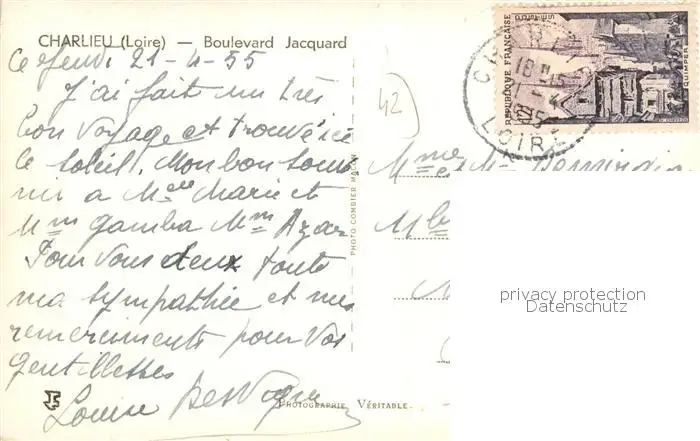 CHARLIEU (Loire) — Boulevard Jacquard
Ce Jeudi 21-4-55
J'ai fait un très
bon voyage et trouvé ici
le soleil. Mon bon souve
nir a Melle Marie et
Mm Gamba Mm Azar
Pour vous deux toute
ma sympathie et mes
remerciments pour vos
gentillesses
Louise
42
PHOTO-COMBIER MACON
PHOTOGRAPHIE VÉRITABLE
REPUBLIQUE FRANÇAISE
QUIMPER
12F
CHARLIEU
18H15
21-4
LOIRE
Mme et M.
privacy protection
Datenschutz